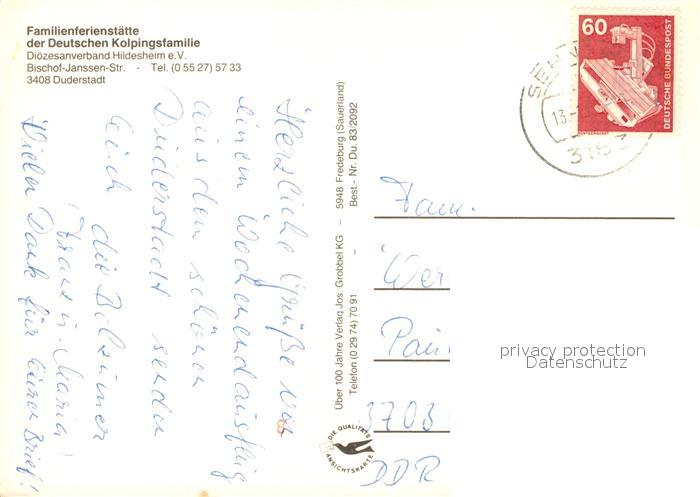 Familienferienstätte
der Deutschen Kolpingsfamilie
Diözesanverband Hildesheim e.V.
Bischof-Janssen-Str. - Tel. (0 55 27) 57 33
3408 Duderstadt
Herzliche Grüße von
einem Wochenendausflug
aus dem schönen
Duderstadt senden
Euch die Bilzinner
Franz u. Maria!
Vielen Dank für Euren Brief!
Über 100 Jahre Verlag Jos. Grobbel KG - 5948 Fredeburg (Sauerland)
Telefon (0 29 74) 70 91 - Best.- Nr. Du. 83/2092
DIE QUALITÄTS
ANSICHTSKARTE
60
DEUTSCHE BUNDESPOST
13.
3183
Fam.
Wer
Pau
3703
DDR
privacy protection
Datenschutz